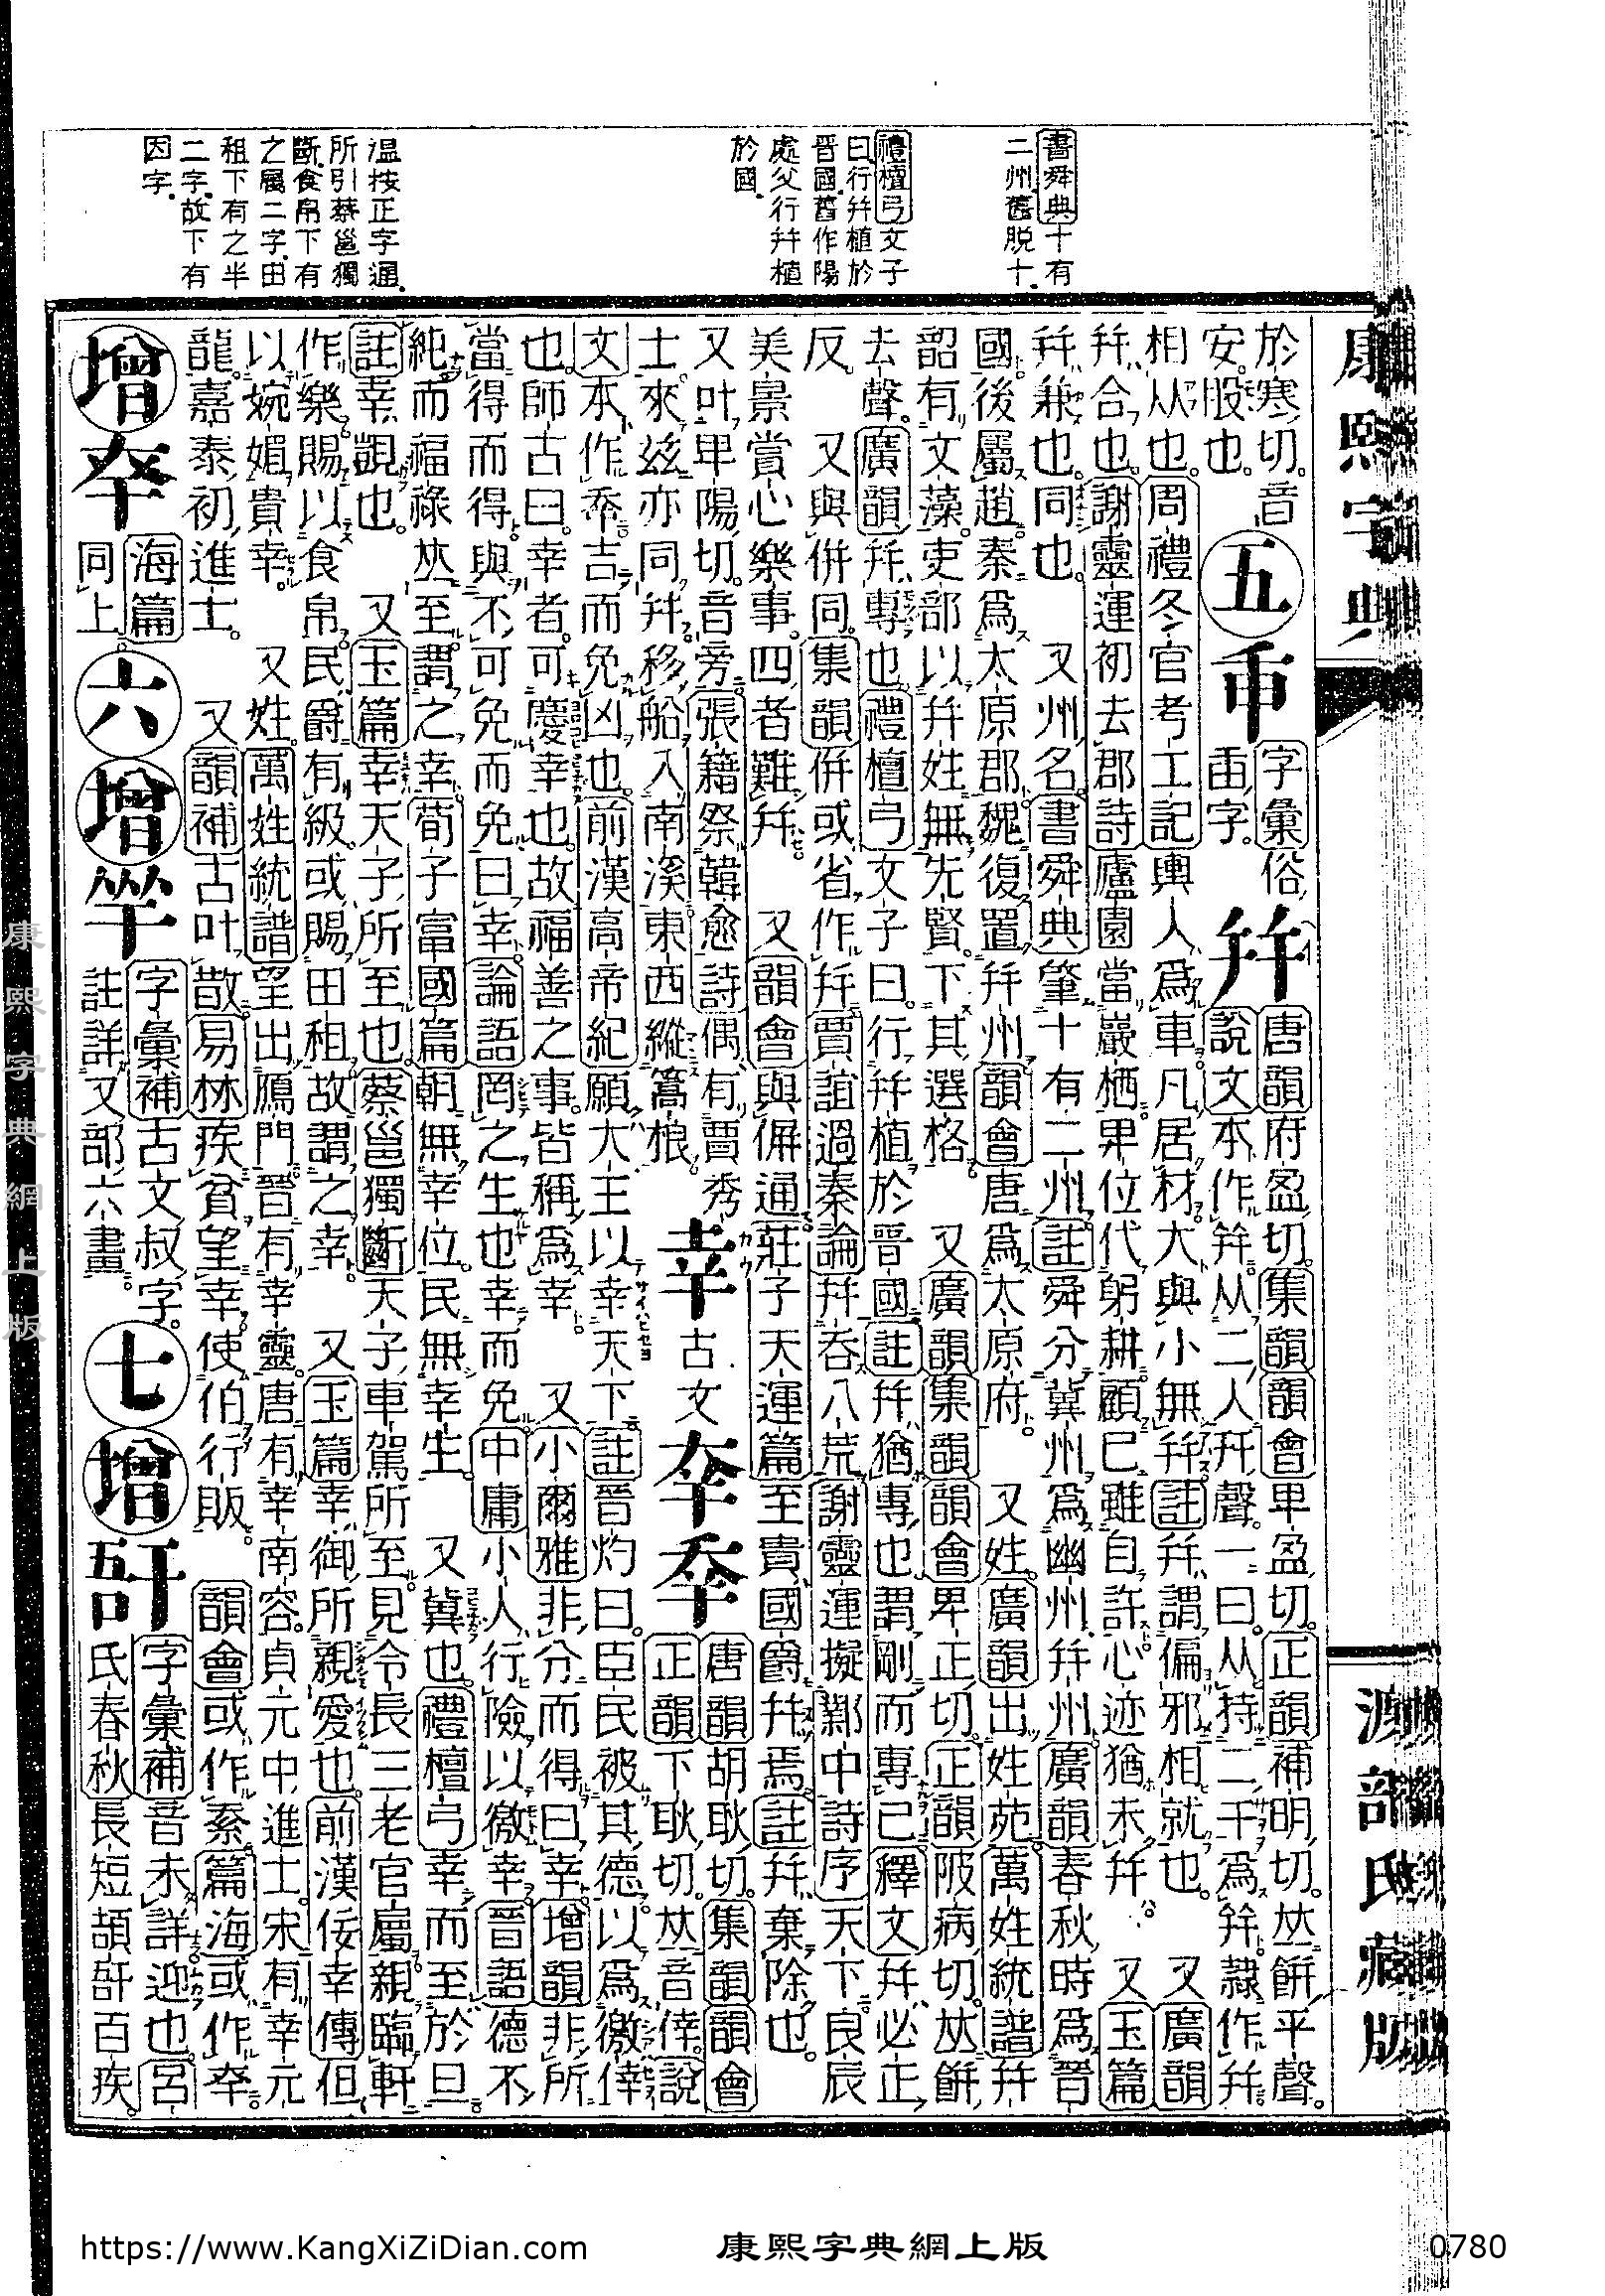 書舜典十有
二州舊脫十
禮檀弓文子
曰行幷植於
晉國舊作陽
處父行幷植
於國
溫按正字通
所引蔡邕獨
斷食帛下有
之屬二字田
租下有之半
二字故下有
因字
康熙字典
渡部氏藏版
於寒切音
安股也
五
字彙俗
臿字
幷
唐韻府盈切集韻韻會𤰞盈切正韻補明切𠀤餠平聲
說文本作𢆙从二人幵聲一曰从持二干爲𢆙隸作幷
相从也周禮冬官考工記輿人爲車凡居材大與小無幷註幷謂偏邪相就也 又廣韻
幷合也謝靈運初去郡詩廬園當巖栖𤰞位代躬耕顧已雖自許心迹猶未幷 又玉篇
幷兼也同也 又州名書舜典肇十有二州註舜分冀州爲幽州幷州廣韻春秋時爲晉
國後屬趙秦爲太原郡魏復置幷州韻會唐爲太原府 又姓廣韻出姓苑萬姓統譜幷
韶有文藻吏部以幷姓無先賢下其選格 又廣韻集韻韻會𤰞正切正韻陂病切𠀤餠
去聲廣韻幷專也禮檀弓文子曰行幷植於晉國註幷猶專也謂剛而專己釋文幷必正
反 又與併同集韻併或省作幷賈誼過秦論幷吞八荒謝靈運擬鄴中詩序天下良辰
美景賞心樂事四者難幷 又韻會與偋通莊子天運篇至貴國爵幷焉註幷棄除也
又叶𤰞陽切音旁張籍祭韓愈詩偶有賈秀
士來兹亦同幷移船入南溪東西縱篙桹
幸
古文
𡴘
𡴞
唐韻胡耿切集韻韻會
正韻下耿切𠀤音倖說
文本作𡴘吉而免凶也前漢高帝紀願大王以幸天下註晉灼曰臣民被其德以爲徼倖
也師古曰幸者可慶幸也故福善之事皆稱爲幸 又小爾雅非分而得曰幸增韻非所
當得而得與不可免而免曰幸論語罔之生也幸而免中庸小人行險以徼幸晉語德不
純而福祿𠀤至謂之幸荀子富國篇朝無幸位民無幸生 又冀也禮檀弓幸而至於旦
註幸覬也 又玉篇幸天子所至也蔡邕獨斷天子車駕所至見令長三老官屬親臨軒
作樂賜以食帛民爵有級或賜田租故謂之幸 又玉篇幸御所親愛也前漢佞幸傳但
以婉媚貴幸 又姓萬姓統譜望出鴈門晉有幸靈唐有幸南容貞元中進士宋有幸元
龍嘉泰初進士 又韻補古叶散易林疾貧望幸使伯行販 韻會或作㚔篇海或作㚔
增
海篇
同上
六
增
字彙補古文叔字
註詳又部六畫
七
增
字彙補音未詳迎也呂
氏春秋長短頡𠵇百疾
https://www.KangXiZiDian.com
康熙字典網上版
0780
康熙字典網上版